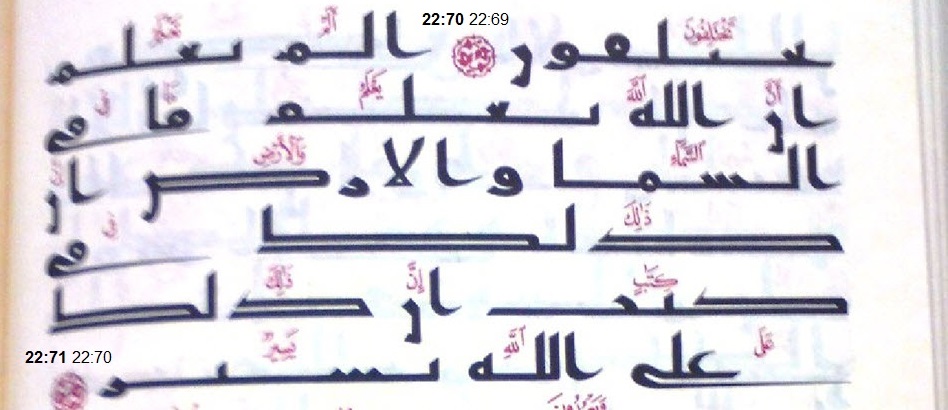 22:70 22:69
تختلفون الم تعلم
ان الله يعلم ما في
السما والارض ان
ذلك في
كتب ان ذلك
على الله يسير
22:71 22:70